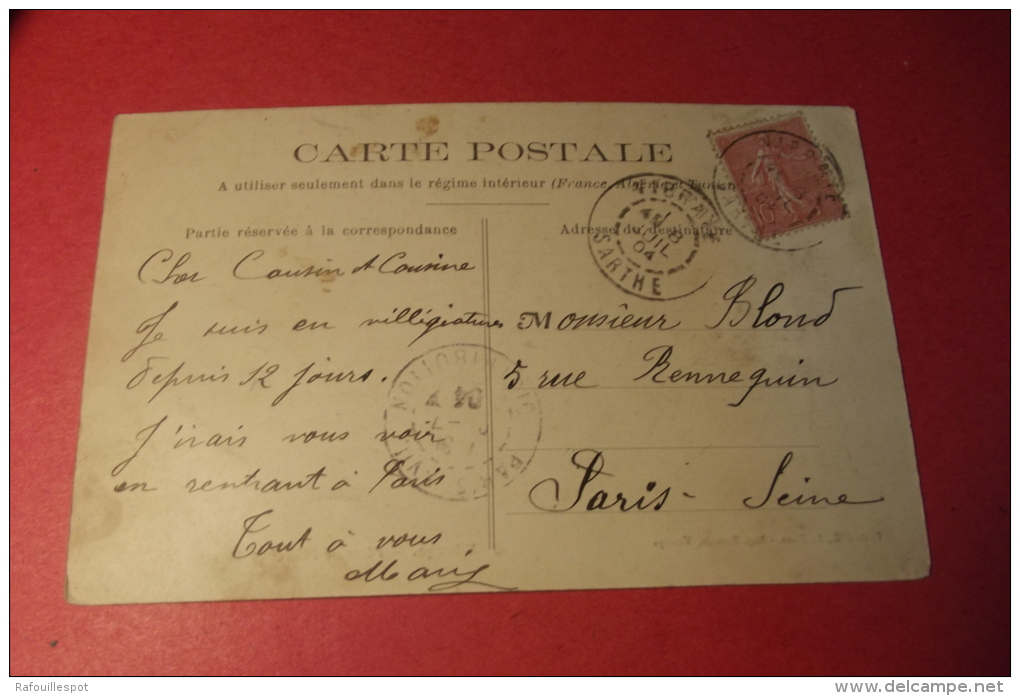 CARTE POSTALE
A utiliser seulement dans le régime intérieur (France, Algérie et Tunisie
Partie réservée à la correspondance
Adresse du destinataire
Cher Cousin et Cousine
Je suis en villégiatures
depuis 12 jours.
J'irais vous voir
en rentrant à Paris
Tout à vous
Monsieur Blond
5 rue Rennequin
Paris - Seine
SARTHE
JUIL
04
DISTRIBUTION
PARIS
04
10
Rafouillespot
delcampe.net